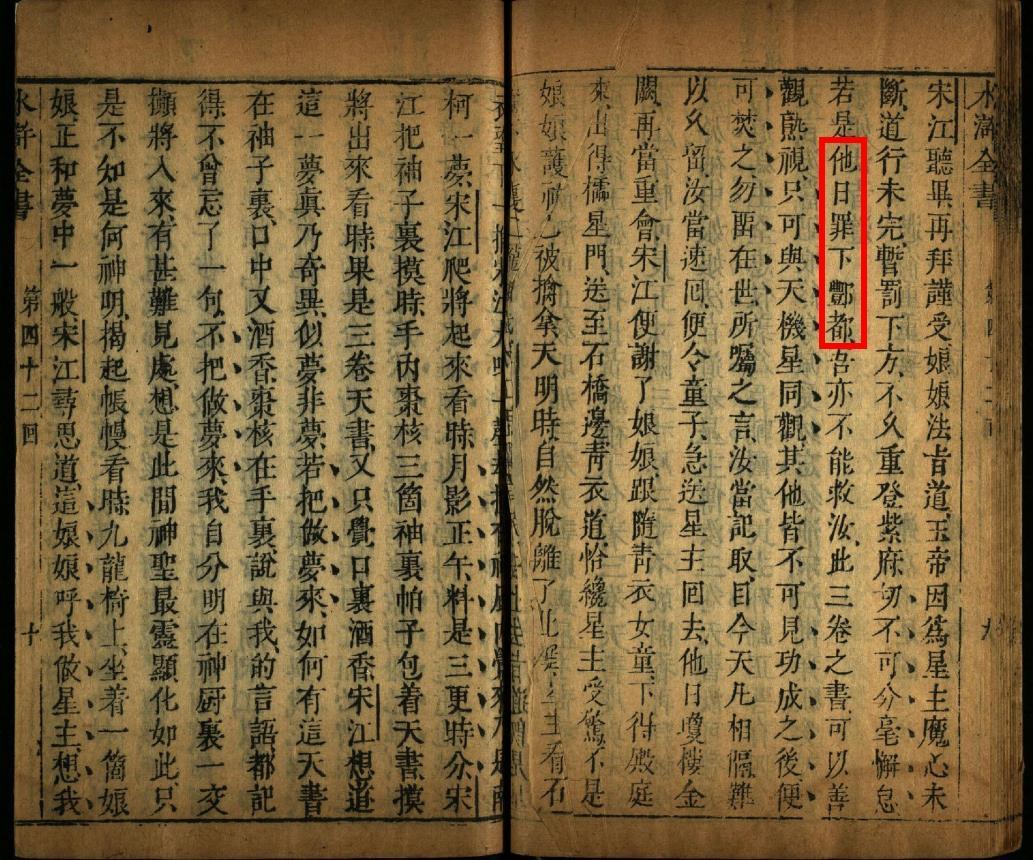 水滸全書 九
宋江聽畢再拜謹受娘娘法旨道玉帝因爲星主魔心未
斷道行未完暫罰下方不久重登紫府切不可分毫懈怠
若是他日罪下酆都吾亦不能救汝此三卷之書可以善
觀熟視只可與天機星同觀其他皆不可見功成之後便
可焚之勿畱在世所囑之言汝當記取目今天凡相隔難
以久留汝當速回便令童子急送星主回去他日瓊樓金
闕再當重會宋江便謝了娘娘跟隨青衣女童下得殿庭
來出得欞星門送至石橋邊青衣道恰纔星主受驚不是
娘娘護祐已被擒拿天明時自然脫離了此 主看石
柯一夢宋江爬將起來看時月影正午料是三更時分宋
江把袖子裏摸時手內棗核三箇袖裏帕子包着天書摸
將出來看時果是三卷天書又只覺口裏酒香宋江想道
這一夢眞乃奇異似夢非夢若把做夢來如何有這天書
在袖子裏口中又酒香棗核在手裏說與我的言語都記
得不曾忘了一句不把做夢來我自分明在神厨裏一交
攧將入來有甚難見處想是此間神聖最靈顯化如此只
是不知是何神明揭起帳幔看時九龍椅上坐着一箇娘
娘正和夢中一般宋江尋思道這娘娘呼我做星主想我
水滸全書 第四十二回 十